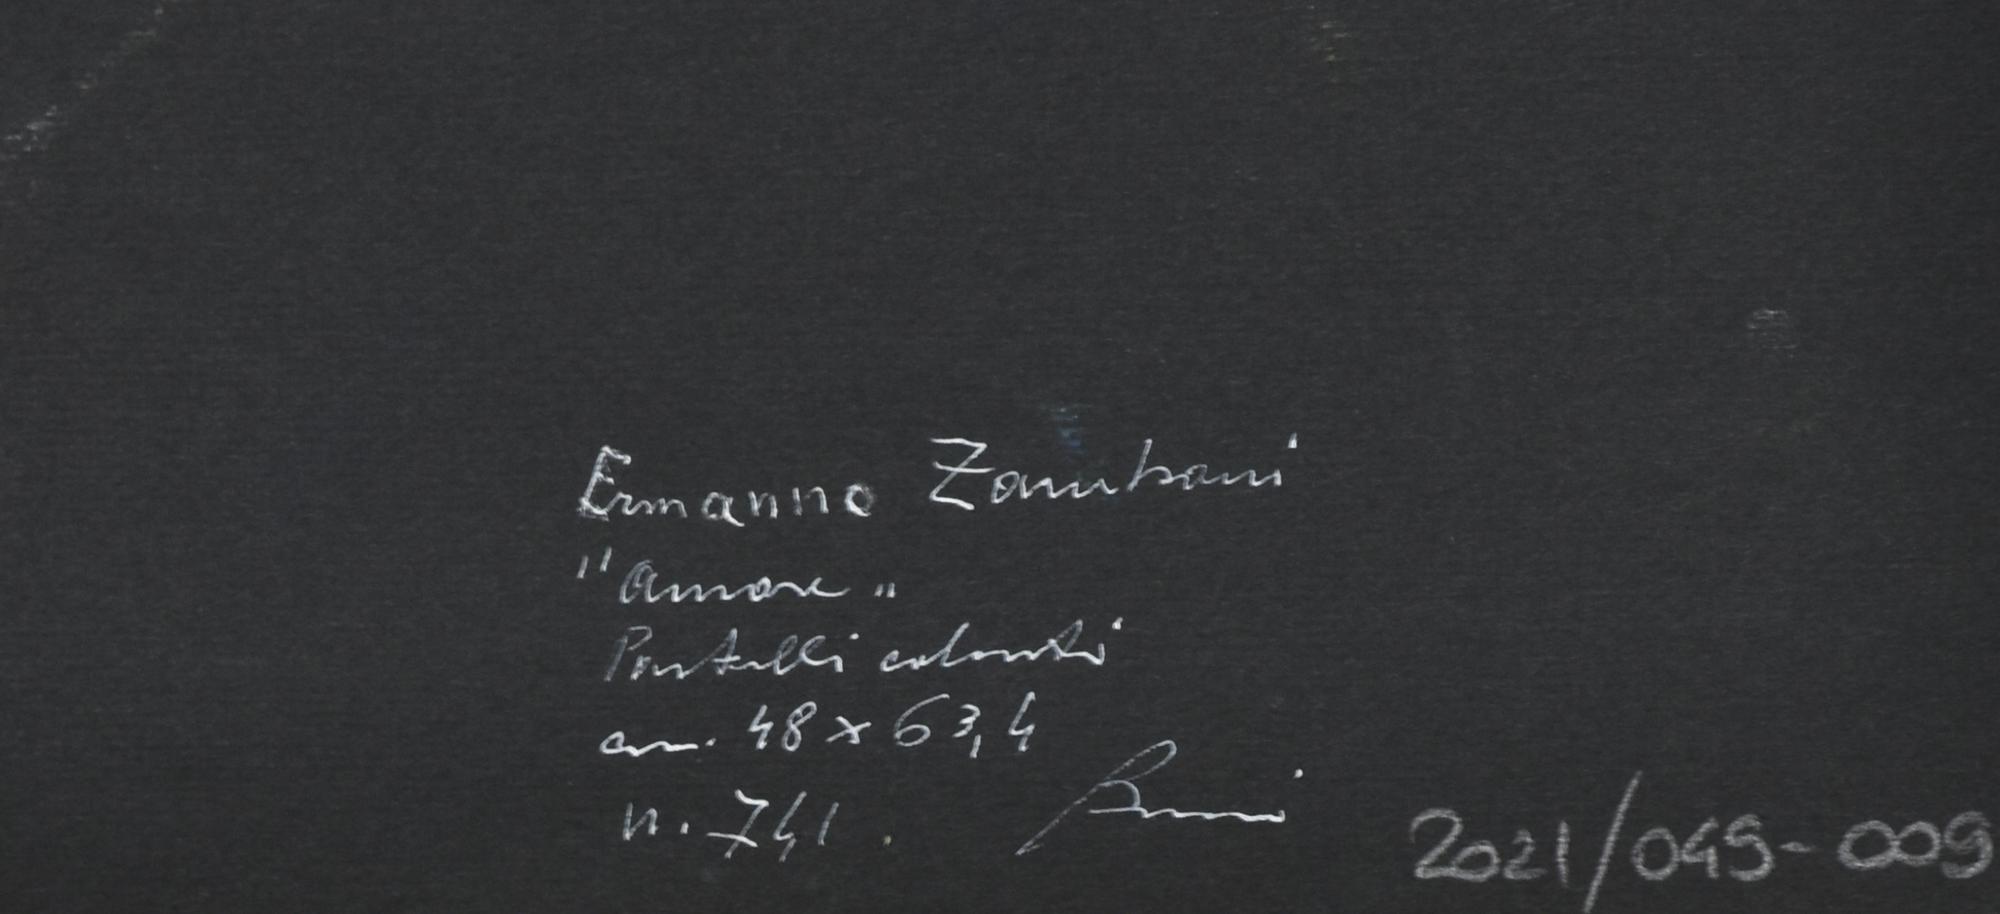 Ermanno Zamboni
"Amore"
Pastelli colorati
cm. 48 x 63,4
n. 741.
2021/049-009